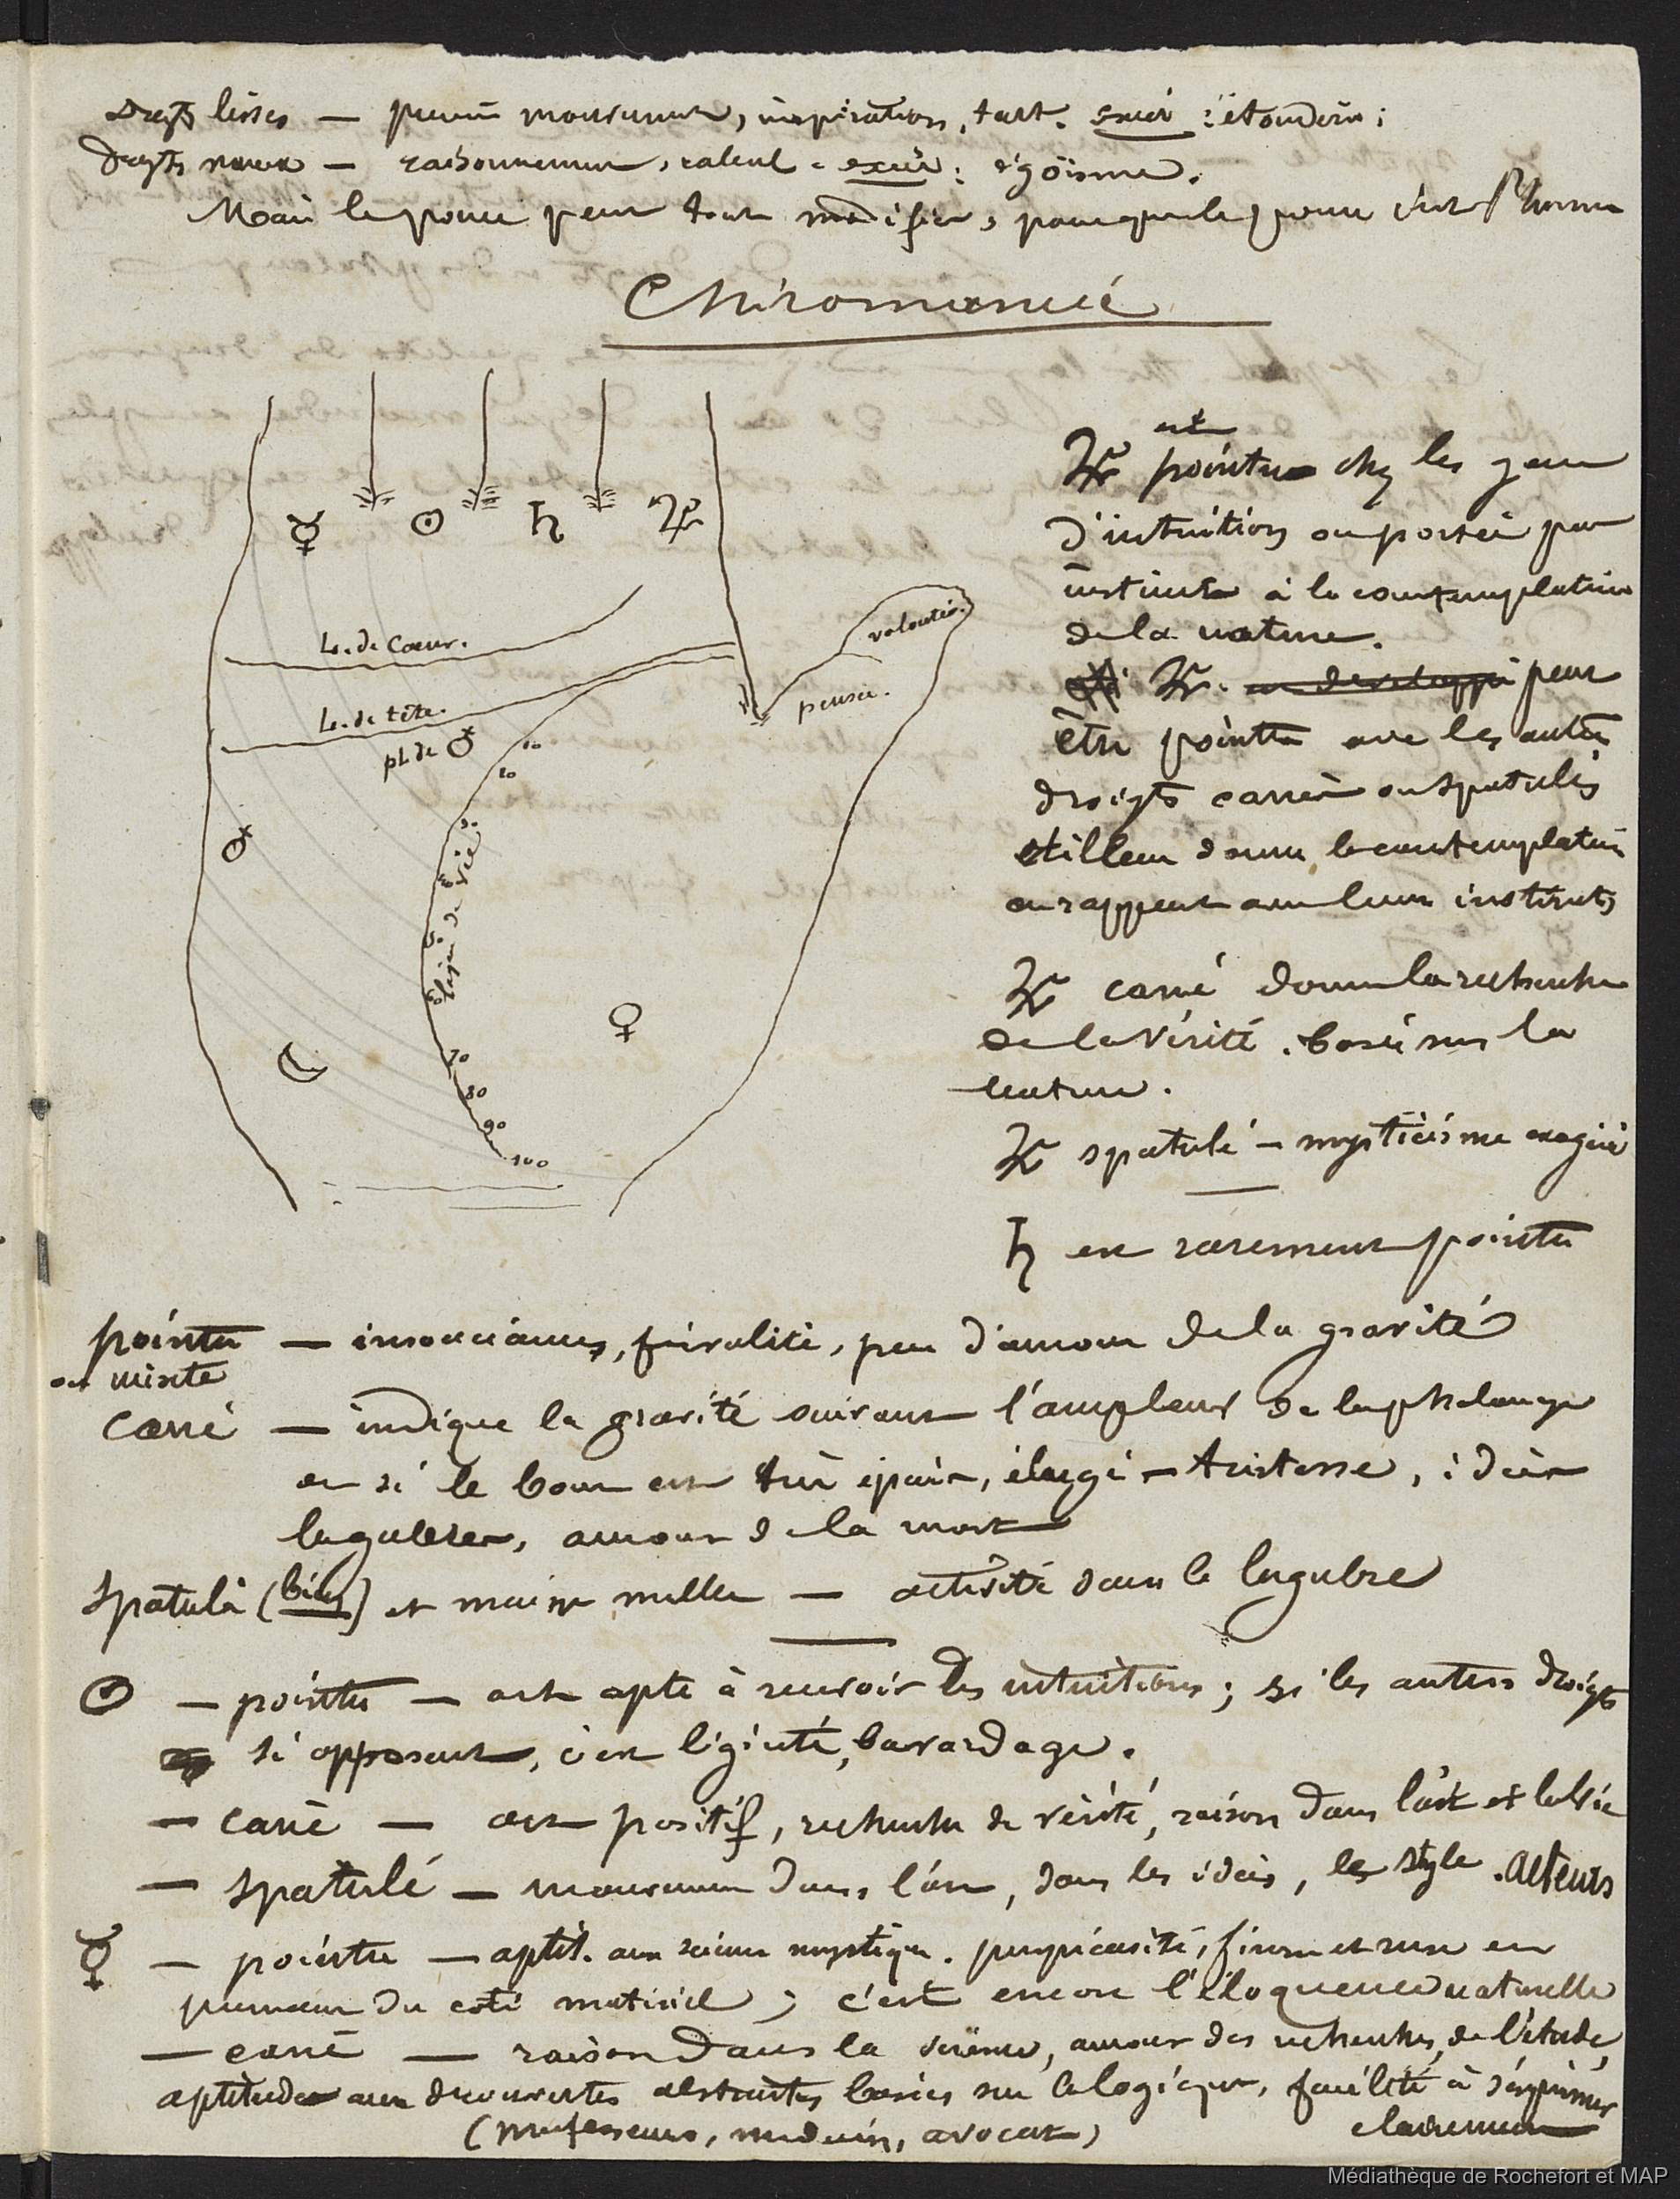 Doigts lisses — premier mouvement, inspiration, tact. excès : étourderie ;
Doigts noueux — raisonnement, calcul – excès : égoïsme.
Mais le pouce peut tout modifier, parce que le pouce c'est l'homme
Chiromancie
☿ ☉ ♄ ♃
L. de Cœur.
volonté.
L. de tête.
pensée.
pl. de ♂
10
20
30
40
50
60
70
80
90
100
ligne de vie
♂
♀
☾
est
♃ pointu chez les gens
d'intuition ou portés par
instinct à la contemplation
de la nature.
♃. peut
être pointu avec les autres
doigts carrés ou spatulés
et il leur donne la contemplation
en rapport avec leurs instincts
♃ carré donne la recherche
de la Vérité. basée sur la
nature.
♃ spatulé – mysticisme exagéré
♄ est rarement pointu
pointu — insouciance, frivolité, peu d'amour de la gravité
ou mixte
Carré — indique la gravité suivant l'ampleur de la phalange
et si le bout est très épais, élargi – tristesse, idées
lugubres, amour de la mort
Spatulé ( ) et main molle — activité dans le lugubre
☉ — pointu — art apte à recevoir les intuitions ; si les autres doigts
s'i opposent, c'est légèreté, bavardage.
— carré — art positif, recherche de vérité, raison dans l'art et la vie
— spatulé — mouvement dans l'art, dans les idées, le style. Acteurs
☿ — pointu — aptit. aux sciences mystiques. perspicacité, finesse et ruse en
penchant du coté matériel ; c'est encore l'éloquence naturelle
— carré — raison dans la science, amour des recherches, de l'étude,
aptitudes aux découvertes abstraites basées sur la logique, facilité à s'exprimer
(professeurs, médecin, avocat) clairement
Médiathèque de Rochefort et MAP